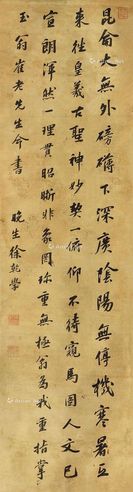 昆侖大無外磅礴下深廣陰陽無停機寒暑互
來徃皇羲古聖神妙契一俯仰不待窺馬圖人文已
宣朗渾然一理貫昭晰非象罔珍重無極翁為我重指掌
玉翁崔老先生命書
晚生徐乾學